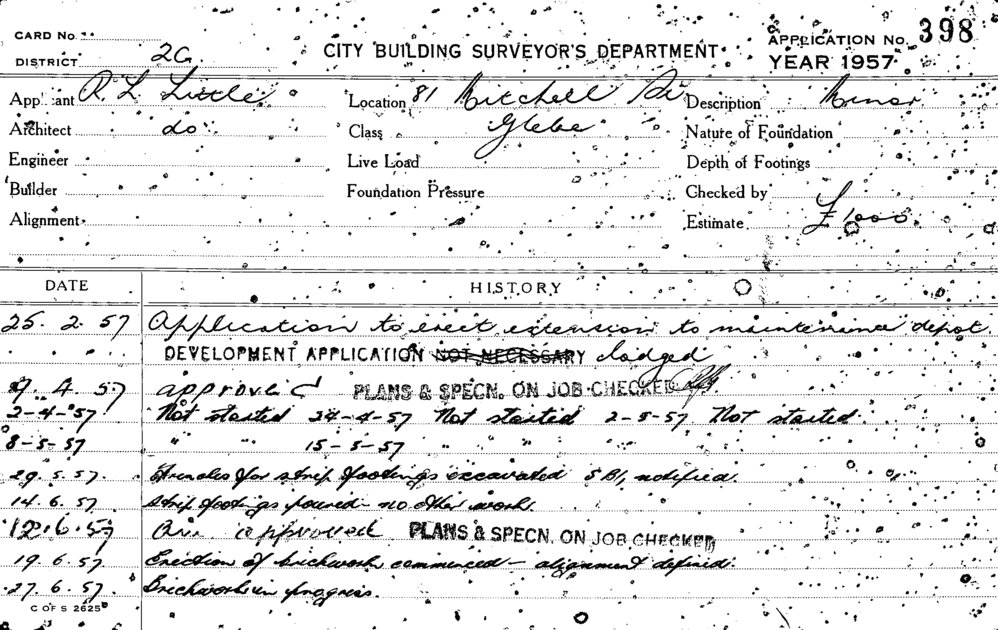 CARD No.
APPLICATION No. 398
DISTRICT 2G
CITY BUILDING SURVEYOR'S DEPARTMENT
YEAR 1957
Applicant R. L. Little
Location 81 Mitchell
Description Minor
Architect do
Class Glebe
Nature of Foundation
Engineer
Live Load
Depth of Footings
Builder
Foundation Pressure
Checked by
Alignment
Estimate £1000
DATE HISTORY
25. 2. 57 Application to erect extension to maintenance depot.
DEVELOPMENT APPLICATION NOT NECESSARY lodged
9. 4. 57 approved PLANS & SPECN. ON JOB CHECKED
2-4-57 Not started 24-4-57 Not started 2-5-57 Not started.
8-5-57 " " 15-5-57 " "
29. 5. 57. Trenches for strip footings excavated notified.
14. 6. 57 Strip footings poured - no other work.
12. 6. 57 approved PLANS & SPECN. ON JOB CHECKED
19. 6. 57. Erection of brickwork commenced - alignment defined.
27. 6. 57. Brickwork in progress.
C OF S 2625